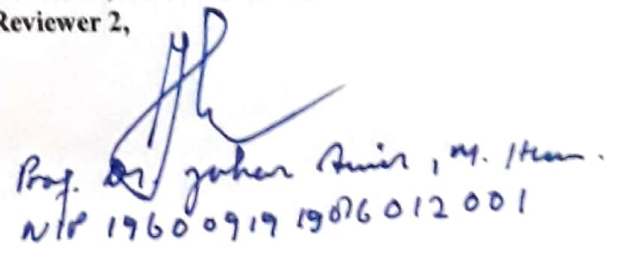 Reviewer 2,
Prof. Dr. Johar Amir, M. Hum.
NIP 19600919 1986012001